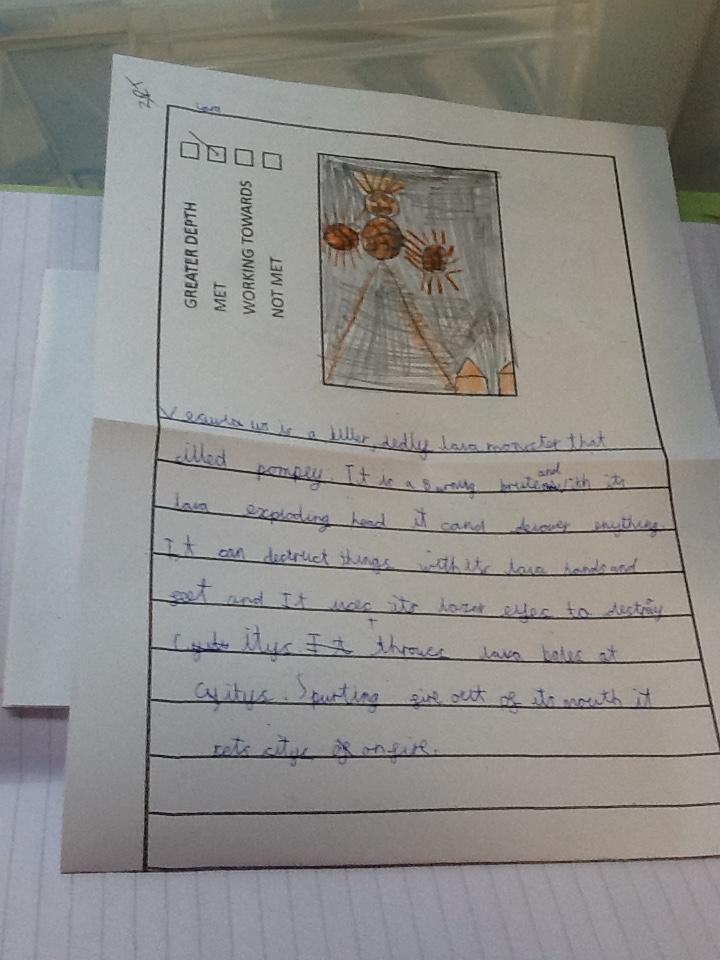 Lava
GREATER DEPTH
MET
WORKING TOWARDS
NOT MET
is a killer, dedly lava monster that
killed pompey. It is a burning brute and with its
lava exploding head it cand devower enything.
It can destruct things with its lava hands and
feet and It uses its lazer eyes to destray
itys It throws lava bales at
cyitys. Spurting fire out of its mouth it
sets citys of on fire.